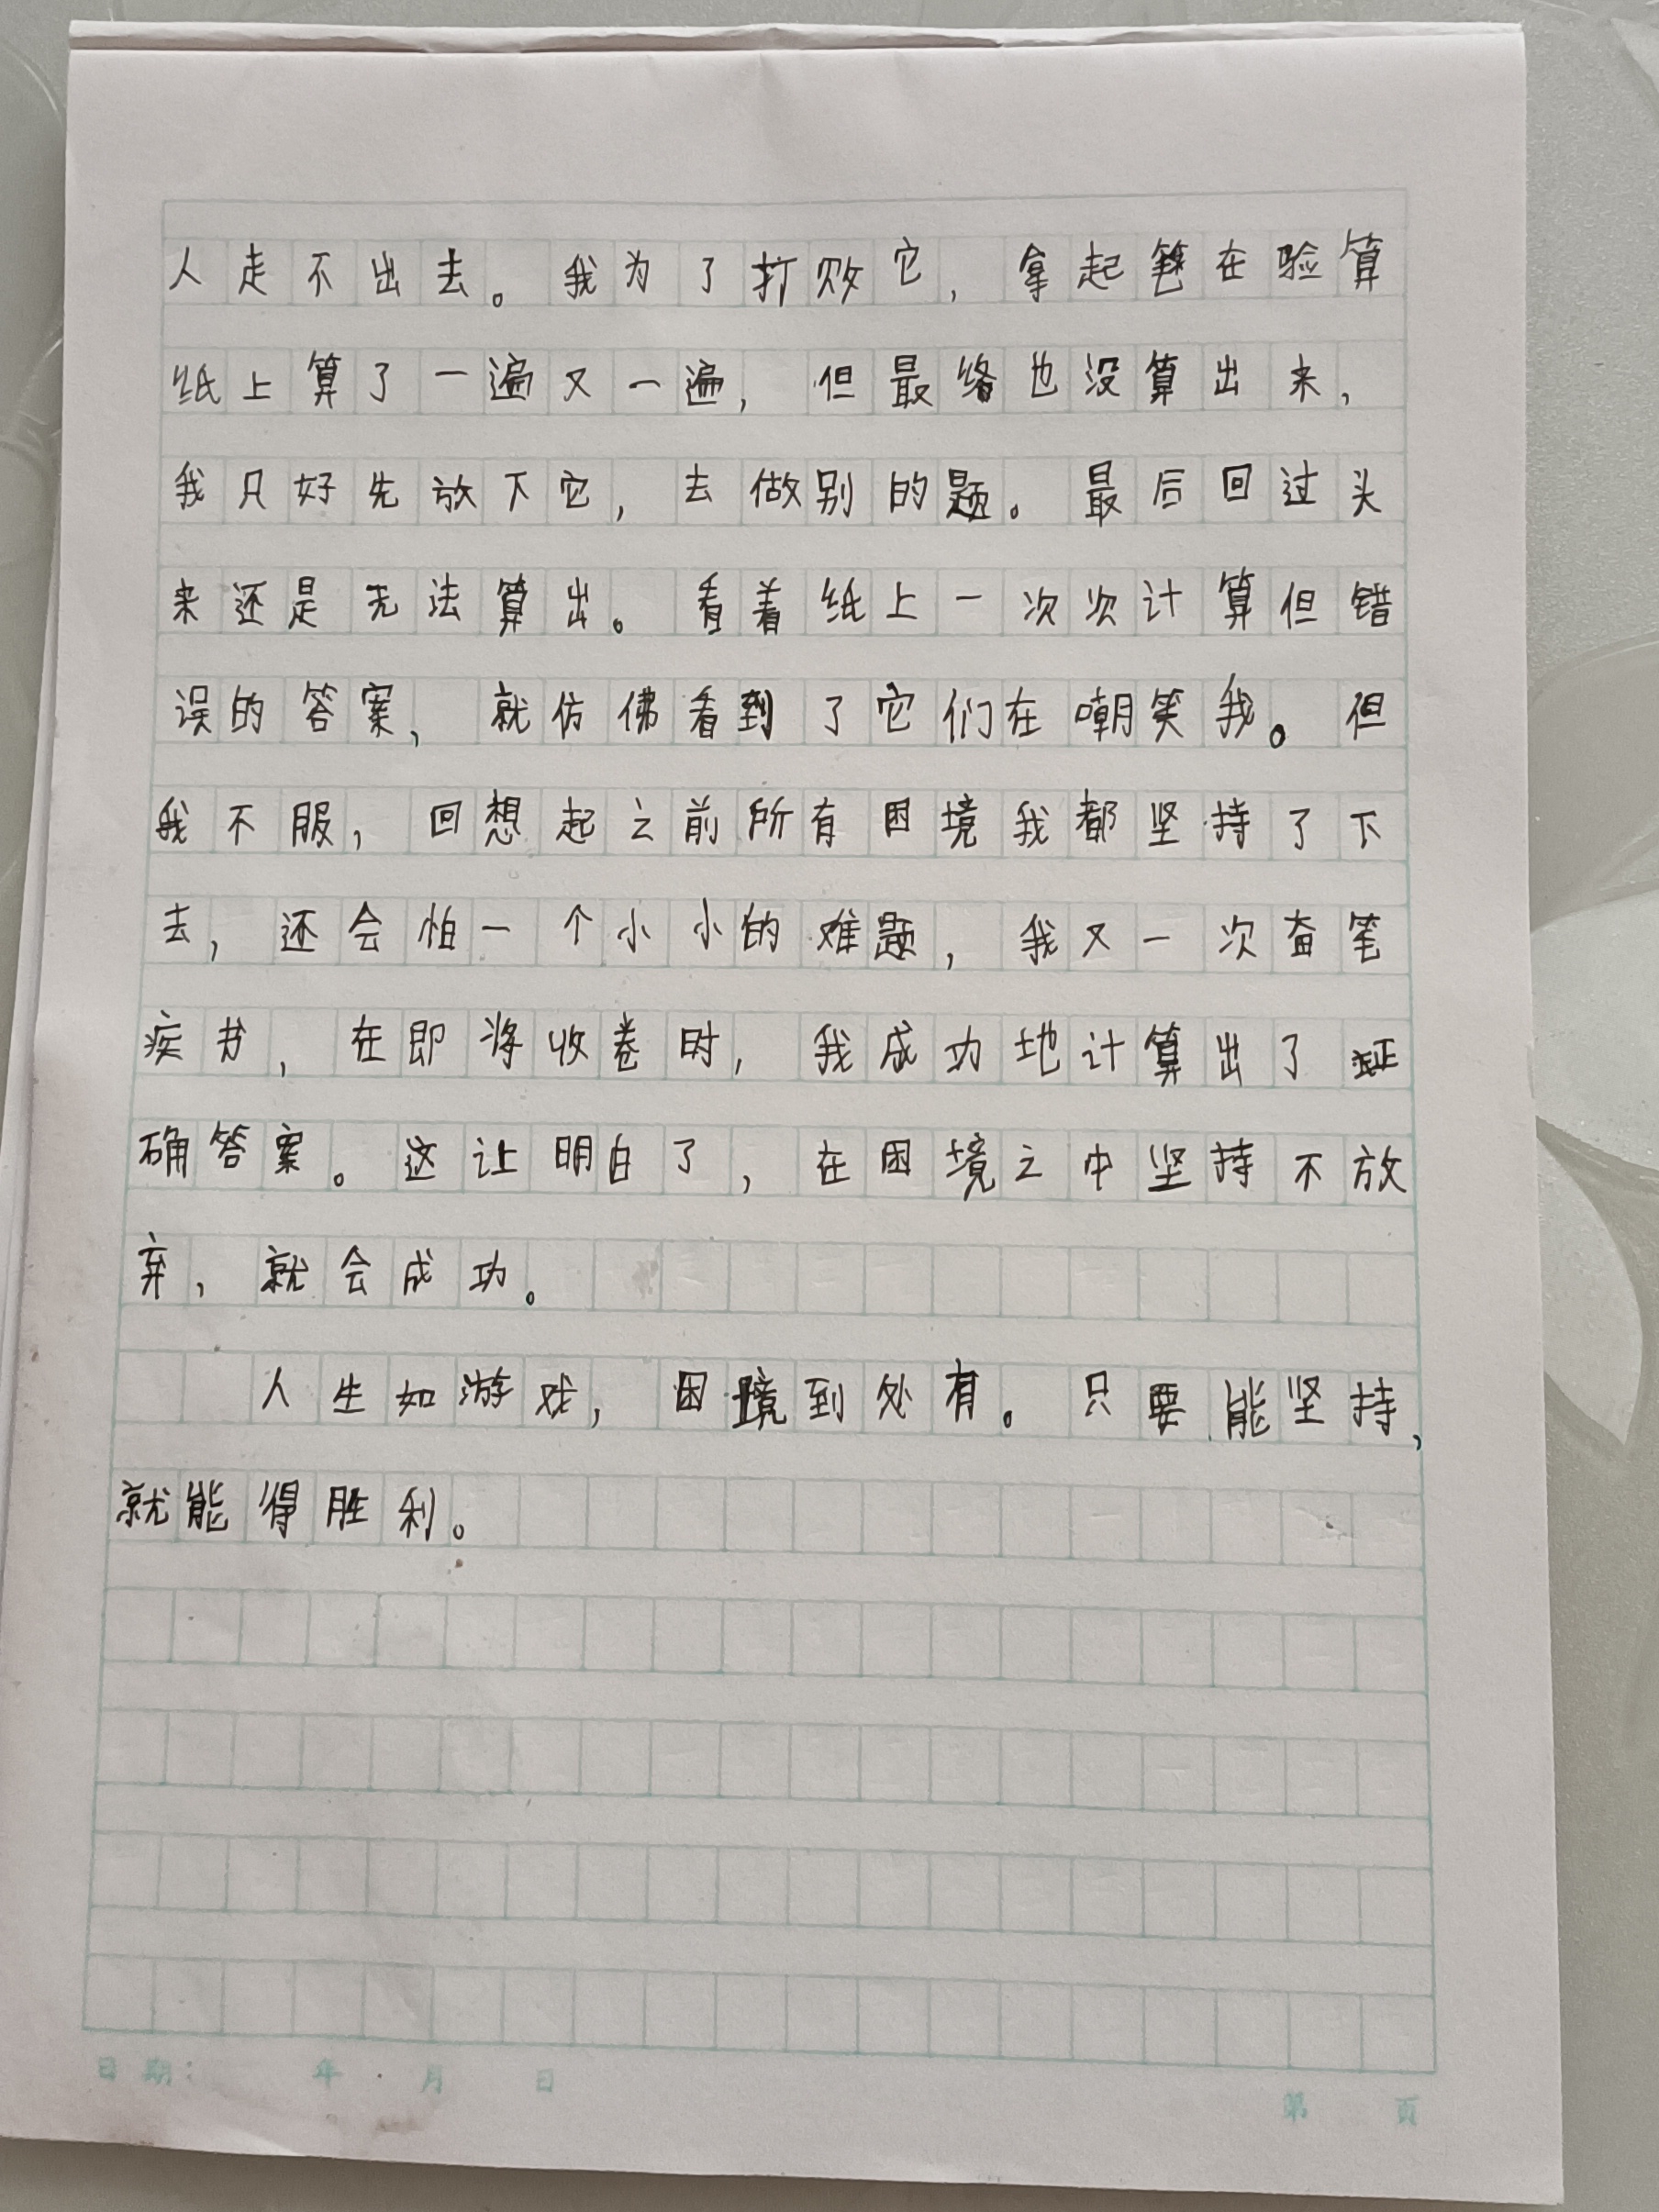 人走不出去。我为了打败它，拿起笔在验算
纸上算了一遍又一遍，但最终也没算出来，
我只好先放下它，去做别的题。最后回过头
来还是无法算出。看着纸上一次次计算但错
误的答案，就仿佛看到了它们在嘲笑我。但
我不服，回想起之前所有困境我都坚持了下
去，还会怕一个小小的难题，我又一次奋笔
疾书，在即将收卷时，我成功地计算出了正
确答案。这让明白了，在困境之中坚持不放
弃，就会成功。
人生如游戏，困境到处有。只要能坚持，
就能得胜利。
日期： 年 月 日
第 页